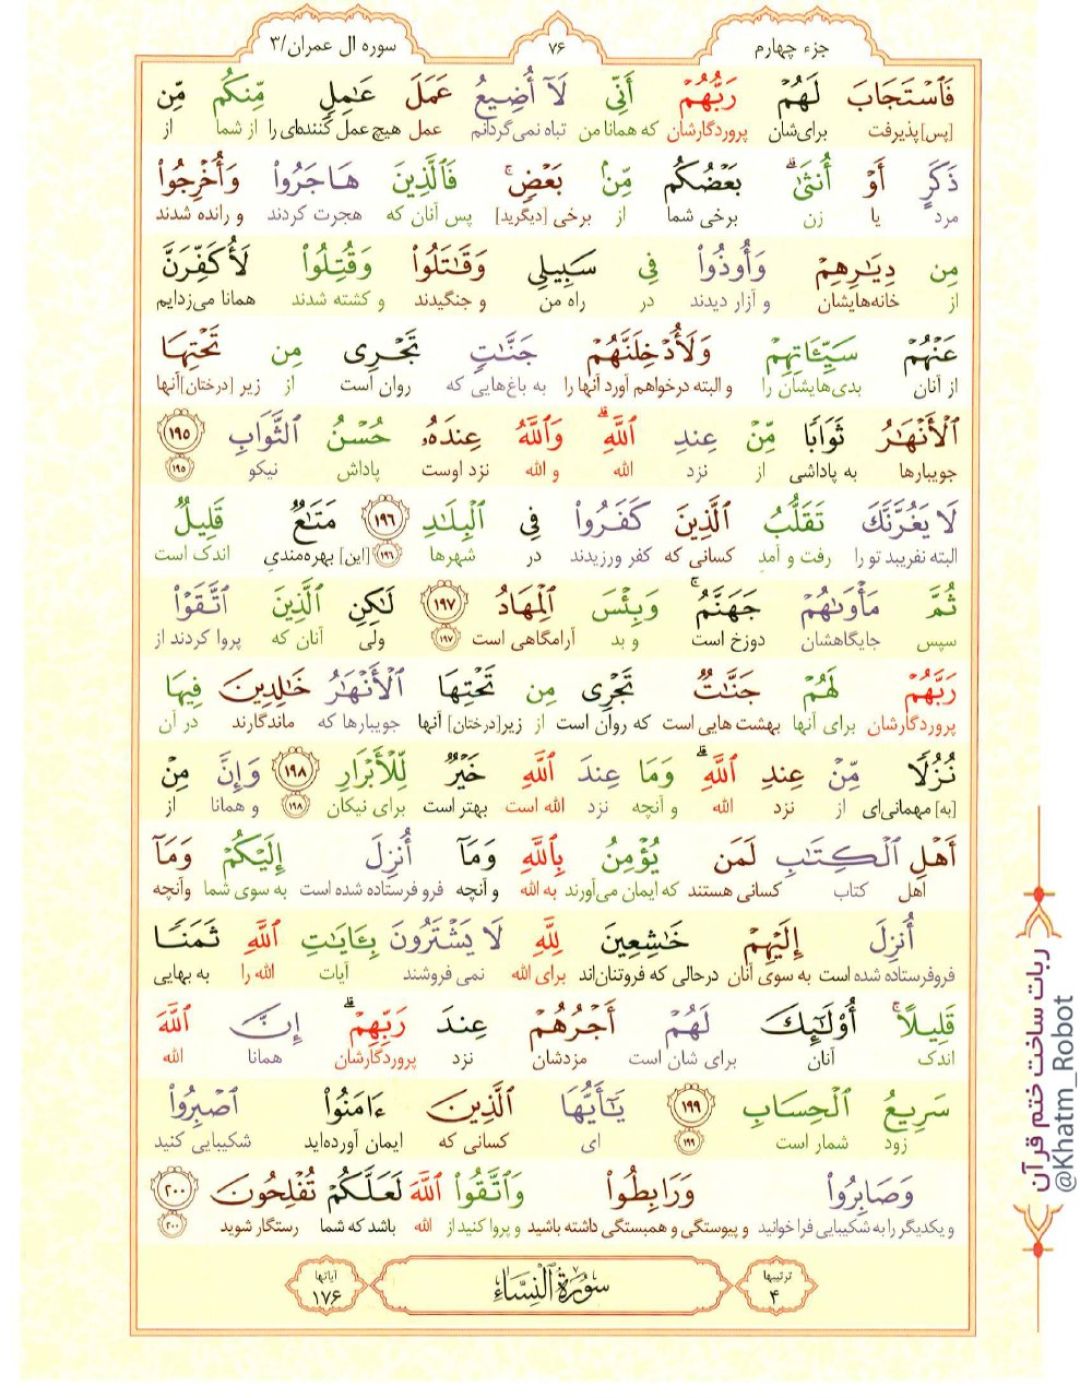 جزء چهارم
۷۶
سوره ال عمران/۳
فَٱسۡتَجَابَ لَهُمۡ رَبُّهُمۡ أَنِّي لَآ أُضِيعُ عَمَلَ عَٰمِلٖ مِّنكُم مِّن
[پس]پذیرفت برای‌شان پروردگارشان که همانا من تباه نمی‌گردانم عمل هیچ عمل کننده‌ای را از شما از
ذَكَرٍ أَوۡ أُنثَىٰۖ بَعۡضُكُم مِّنۢ بَعۡضٖۖ فَٱلَّذِينَ هَاجَرُواْ وَأُخۡرِجُواْ
مرد یا زن برخی شما از برخی [دیگرید] پس آنان که هجرت کردند و رانده شدند
مِن دِيَٰرِهِمۡ وَأُوذُواْ فِي سَبِيلِي وَقَٰتَلُواْ وَقُتِلُواْ لَأُكَفِّرَنَّ
از خانه‌هایشان و آزار دیدند در راه من و جنگیدند و کشته شدند همانا می‌زدایم
عَنۡهُمۡ سَيِّـَٔاتِهِمۡ وَلَأُدۡخِلَنَّهُمۡ جَنَّٰتٖ تَجۡرِي مِن تَحۡتِهَا
از آنان بدی‌هایشان را و البته درخواهم آورد آنها را به باغ‌هایی که روان است از زیر [درختان]آنها
ٱلۡأَنۡهَٰرُ ثَوَابٗا مِّنۡ عِندِ ٱللَّهِۚ وَٱللَّهُ عِندَهُۥ حُسۡنُ ٱلثَّوَابِ ۱۹۵
جویبارها به پاداشی از نزد الله و الله نزد اوست پاداش نیکو ۱۹۵
لَا يَغُرَّنَّكَ تَقَلُّبُ ٱلَّذِينَ كَفَرُواْ فِي ٱلۡبِلَٰدِ ۱۹۶ مَتَٰعٞ قَلِيلٞ
البته نفریبد تو را رفت و آمدِ کسانی که کفر ورزیدند در شهرها ۱۹۶ [این] بهره‌مندیِ اندک است
ثُمَّ مَأۡوَىٰهُمۡ جَهَنَّمُۖ وَبِئۡسَ ٱلۡمِهَادُ ۱۹۷ لَٰكِنِ ٱلَّذِينَ ٱتَّقَوۡاْ
سپس جایگاهشان دوزخ است و بد آرامگاهی است ۱۹۷ ولی آنان که پروا کردند از
رَبَّهُمۡ لَهُمۡ جَنَّٰتٞ تَجۡرِي مِن تَحۡتِهَا ٱلۡأَنۡهَٰرُ خَٰلِدِينَ فِيهَا
پروردگارشان برای آنها بهشت هایی است که روان است از زیر[درختان] آنها جویبارها که ماندگارند در آن
نُزُلٗا مِّنۡ عِندِ ٱللَّهِۗ وَمَا عِندَ ٱللَّهِ خَيۡرٞ لِّلۡأَبۡرَارِ ۱۹۸ وَإِنَّ مِنۡ
[به] مهمانی‌ای از نزد الله و آنچه نزد الله است بهتر است برای نیکان ۱۹۸ و همانا از
أَهۡلِ ٱلۡكِتَٰبِ لَمَن يُؤۡمِنُ بِٱللَّهِ وَمَآ أُنزِلَ إِلَيۡكُمۡ وَمَآ
اهل کتاب کسانی هستند که ایمان می‌آورند به الله و آنچه فرو فرستاده شده است به سوی شما وآنچه
أُنزِلَ إِلَيۡهِمۡ خَٰشِعِينَ لِلَّهِ لَا يَشۡتَرُونَ بِـَٔايَٰتِ ٱللَّهِ ثَمَنٗا
فروفرستاده شده است به سوی آنان درحالی که فروتنان‌اند برای الله نمی فروشند آیات الله را به بهایی
قَلِيلًاۚ أُوْلَٰٓئِكَ لَهُمۡ أَجۡرُهُمۡ عِندَ رَبِّهِمۡۗ إِنَّ ٱللَّهَ
اندک آنان برای شان است مزدشان نزد پروردگارشان همانا الله
سَرِيعُ ٱلۡحِسَابِ ۱۹۹ يَٰٓأَيُّهَا ٱلَّذِينَ ءَامَنُواْ ٱصۡبِرُواْ
زود شمار است ۱۹۹ ای کسانی که ایمان آورده‌اید شکیبایی کنید
وَصَابِرُواْ وَرَابِطُواْ وَٱتَّقُواْ ٱللَّهَ لَعَلَّكُمۡ تُفۡلِحُونَ ۲۰۰
و یکدیگر را به شکیبایی فرا خوانید و پیوستگی و همبستگی داشته باشید و پروا کنید از الله باشد که شما رستگار شوید ۲۰۰
ترتیبها
۴
سُورَةُ ٱلنِّسَاءِ
آیاتها
۱۷۶
ربات ساخت ختم قرآن
@Khatm_Robot